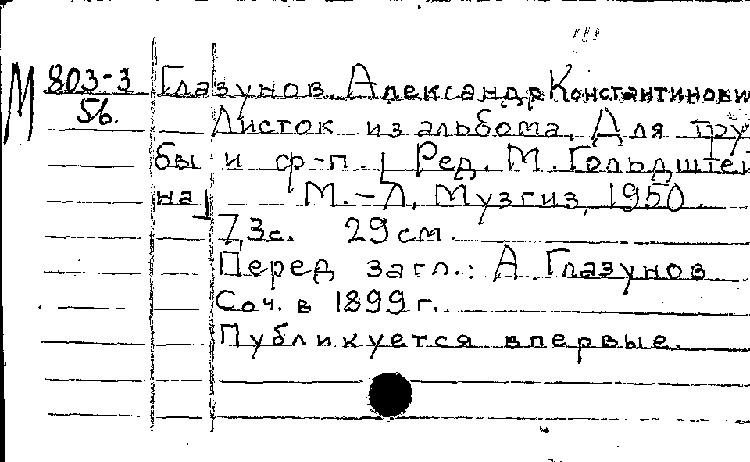 М 803-3 Глазунов Александр Константинови
56. Листок из альбома. Для тру
бы и ф-п. [Ред. М. Гольдштей
на] М.-Л, Музгиз, 1950
7,3с. 29 см.
Перед загл.: А Глазунов
Соч. в 1899 г.
Публикуется впервые.